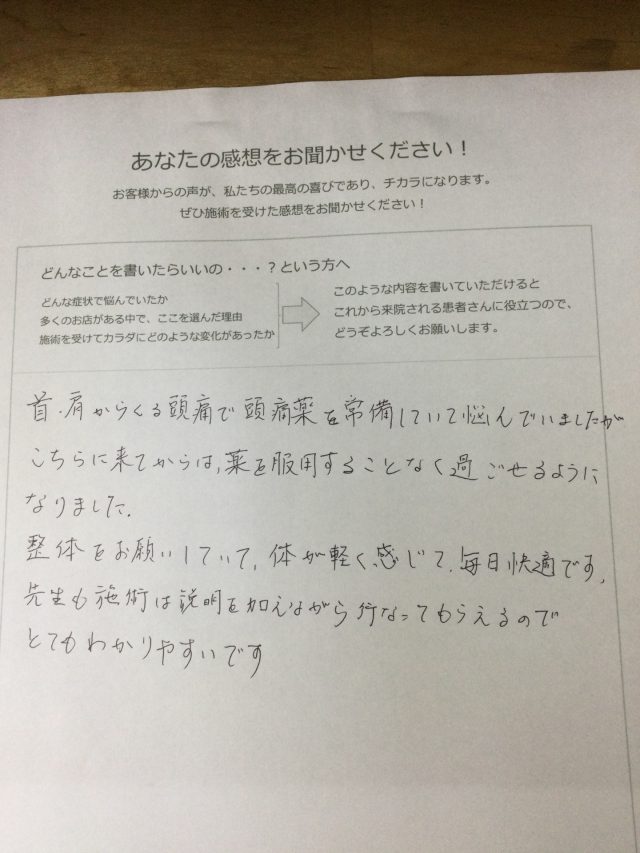 あなたの感想をお聞かせください！
お客様からの声が、私たちの最高の喜びであり、チカラになります。
ぜひ施術を受けた感想をお聞かせください！
どんなことを書いたらいいの・・・？という方へ
どんな症状で悩んでいたか
多くのお店がある中で、ここを選んだ理由
施術を受けてカラダにどのような変化があったか
このような内容を書いていただけると
これから来院される患者さんに役立つので、
どうぞよろしくお願いします。
首・肩からくる頭痛で頭痛薬を常備していて悩んでいましたが
こちらに来てからは、薬を服用することなく過ごせるように
なりました。
整体をお願いしていて、体が軽く感じて、毎日快適です。
先生も施術は説明を加えながら行なってもらえるので
とてもわかりやすいです